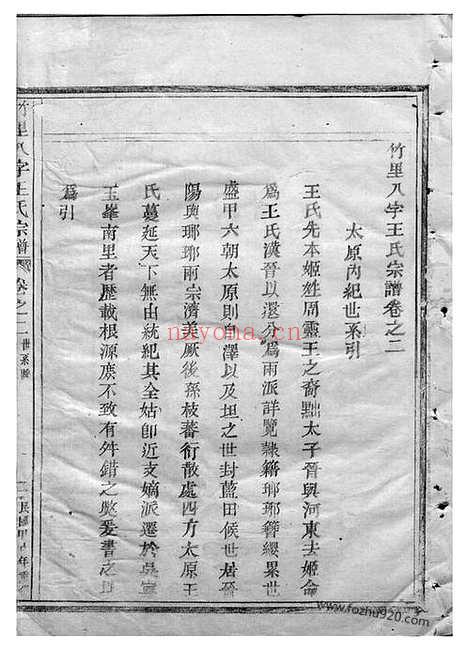 竹里八字王氏宗譜卷之二
太原内紀世系引
王氏先本姬姓周靈王之裔黜太子晉與河東去姬命
為王氏漢晉以還分為兩派詳覽隸籍瑯琊簪纓累世
盛甲六朝太原則自澤以及坦之世封藍田候世居晉
陽與瑯琊兩宗濟美厥後孫枝蕃衍散處四方太原王
氏蔓延天下無由統紀其全姑即近支嫡派遷於吳寧
玉峯南里者歷載根源庶不致有舛錯之獘爰書之以
為引
竹里八字王氏宗譜 卷之二 世系圖
民國甲 年重
nayona.cn
www.fozhu920.com